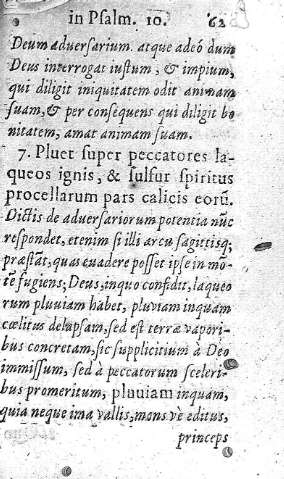 in Psalm. 10. 62
Deum adversarium. atque adeó dum
Deus interrogat iustum, & impium,
qui diligit iniquitatem odit animam
suam, & per consequens qui diligit bo
nitatem, amat animam suam.
7. Pluet super peccatores la-
queos ignis, & sulfur spiritus
procellarum pars calicis eorū.
Dictis de adversariorum potentia nūc
respondet, etenim si illi arcu sagittisq;
præstāt, quas evadere posset ipse in mō-
tē fugiens; Deus, in quo confidit, laqueo
rum pluviam habet, pluviam inquam
cœlitus delapsam, sed est terræ vapori-
bus concretam, sic supplicitium à Deo
immissum, sed à peccatorum sceleri-
bus promeritum, pluviam inquam,
quia neque ima vallis, mons ve editus,
princeps